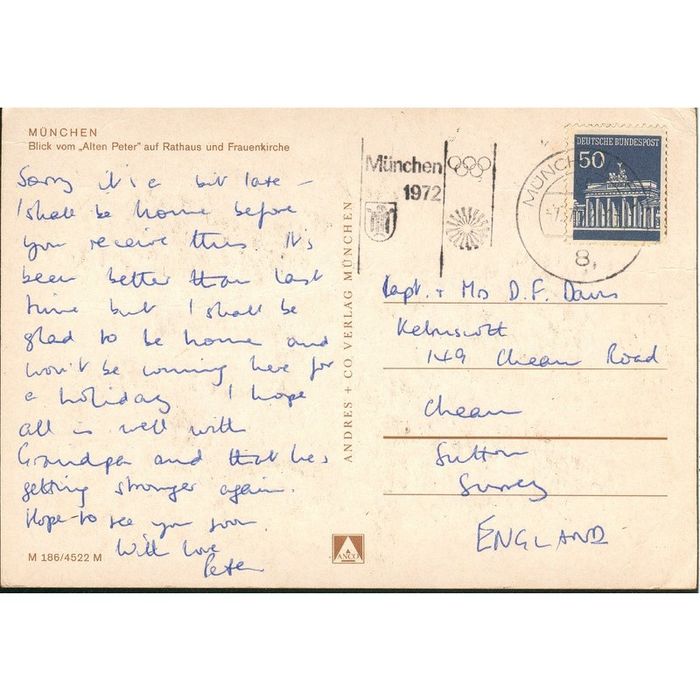 MÜNCHEN
Blick vom „Alten Peter" auf Rathaus und Frauenkirche
Sorry it's a bit late –
I shall be home before
you receive this. It's
been better than last
time but I shall be
glad to be home and
won't be coming here for
a holiday. I hope
all is well with
Grandpa and that he's
getting stronger again.
Hope to see you soon.
With love
Peter
M 186/4522 M
ANDRES + CO. VERLAG MÜNCHEN
ANCO
München
1972
MÜNCHEN
8,
DEUTSCHE BUNDESPOST
50
Capt. + Mrs D.F. Davis
Kelmscott
149 Cheam Road
Cheam
Sutton
Surrey
ENGLAND